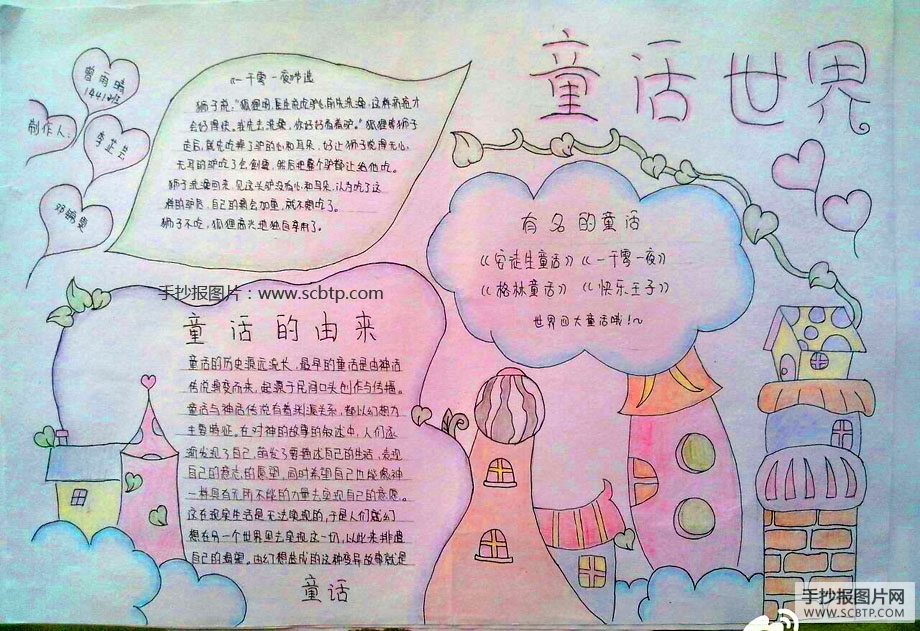 童话世界
制作人：
曾雨晴
1441班
李芷芸
《一千零一夜》节选
狮子说，"狐狸啊，医生说吃驴心前先洗澡，这样病治才
会好得快。我先去洗澡，你好好看着驴。"狐狸等狮子
走后，就先吃掉了驴的心和耳朵，好让狮子觉得无心、
无耳的驴吃了会倒霉，然后把整个驴都让给他吃。
狮子洗澡回来，见这头驴没有心和耳朵，认为吃了这
样的驴后，自己的病会加重，就不想吃了。
狮子不吃，狐狸高兴地独自享用了。
有名的童话
《安徒生童话》《一千零一夜》
《格林童话》《快乐王子》
世界四大童话哦！~
手抄报图片：www.scbtp.com
童话的由来
童话的历史源远流长，最早的童话是由神话
传说演变而来，起源于民间口头创作与传播。
童话与神话传说有着渊源关系，都以幻想为
主要特征。在对神的故事的叙述中，人们逐
渐发现了自己，萌发了要表达自己的生活，表现
自己的意志的愿望，同时希望自己也能像神
一样具有无所不能的力量去实现自己的意愿。
这在现实生活是无法实现的，于是人们就幻
想在另一个世界里去实现这一切，以此来排遣
自己的希望。由幻想造成的这种变异故事就是
童话
手抄报图片网
WWW.SCBTP.COM